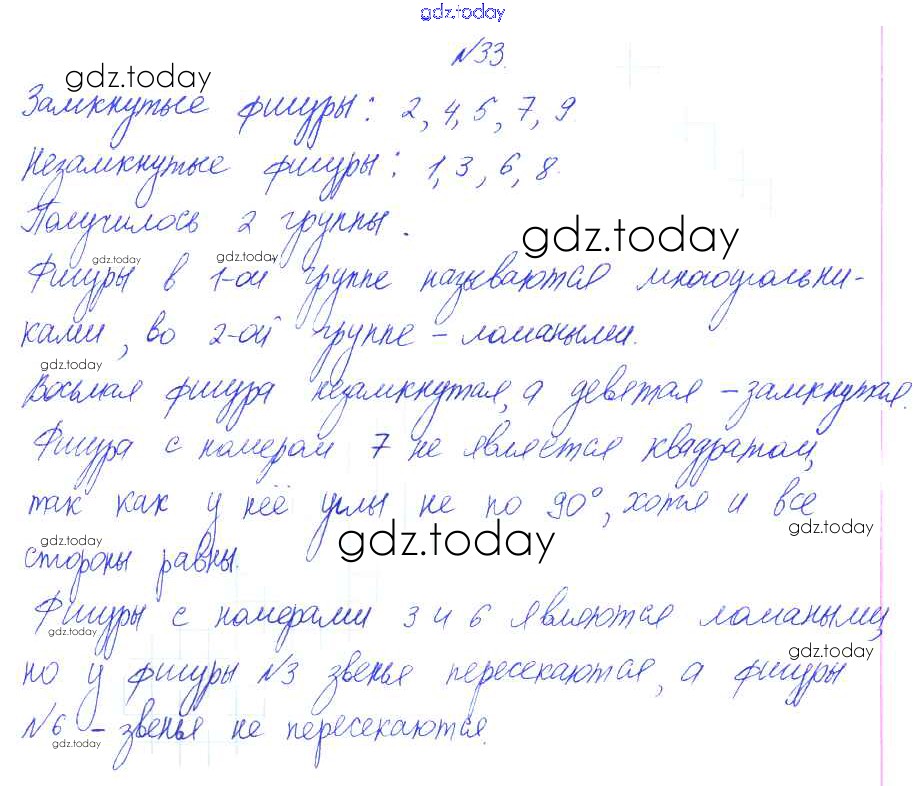 gdz.today
№33.
gdz.today
Замкнутые фигуры: 2, 4, 5, 7, 9.
Незамкнутые фигуры: 1, 3, 6, 8.
gdz.today
Получилось 2 группы.
gdz.today
gdz.today gdz.today
Фигуры в 1-ой группе называются многоугольни-
ками, во 2-ой группе – ломаными.
gdz.today
Восьмая фигура незамкнутая, а девятая – замкнутая.
Фигура с номером 7 не является квадратом,
так как у неё углы не по 90°, хотя и все
gdz.today
gdz.today gdz.today
стороны равны.
Фигуры с номерами 3 и 6 являются ломаными,
gdz.today
gdz.today
но у фигуры №3 звенья пересекаются, а фигуры
№6 – звенья не пересекаются.
gdz.today